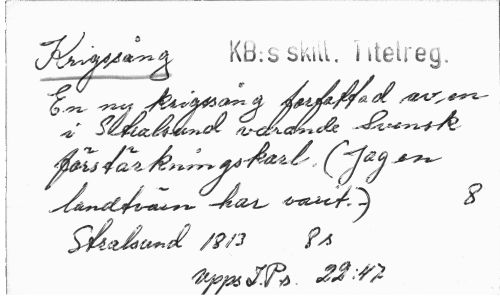 Krigssång KB:s skill. Titelreg.
En ny krigssång forfattad av en
i Stralsund varande Svensk
förstärkningskarl. (Jag en
landtvärn har varit.-) 8
Stralsund 1813 8s
Upps I.P.s. 22:47